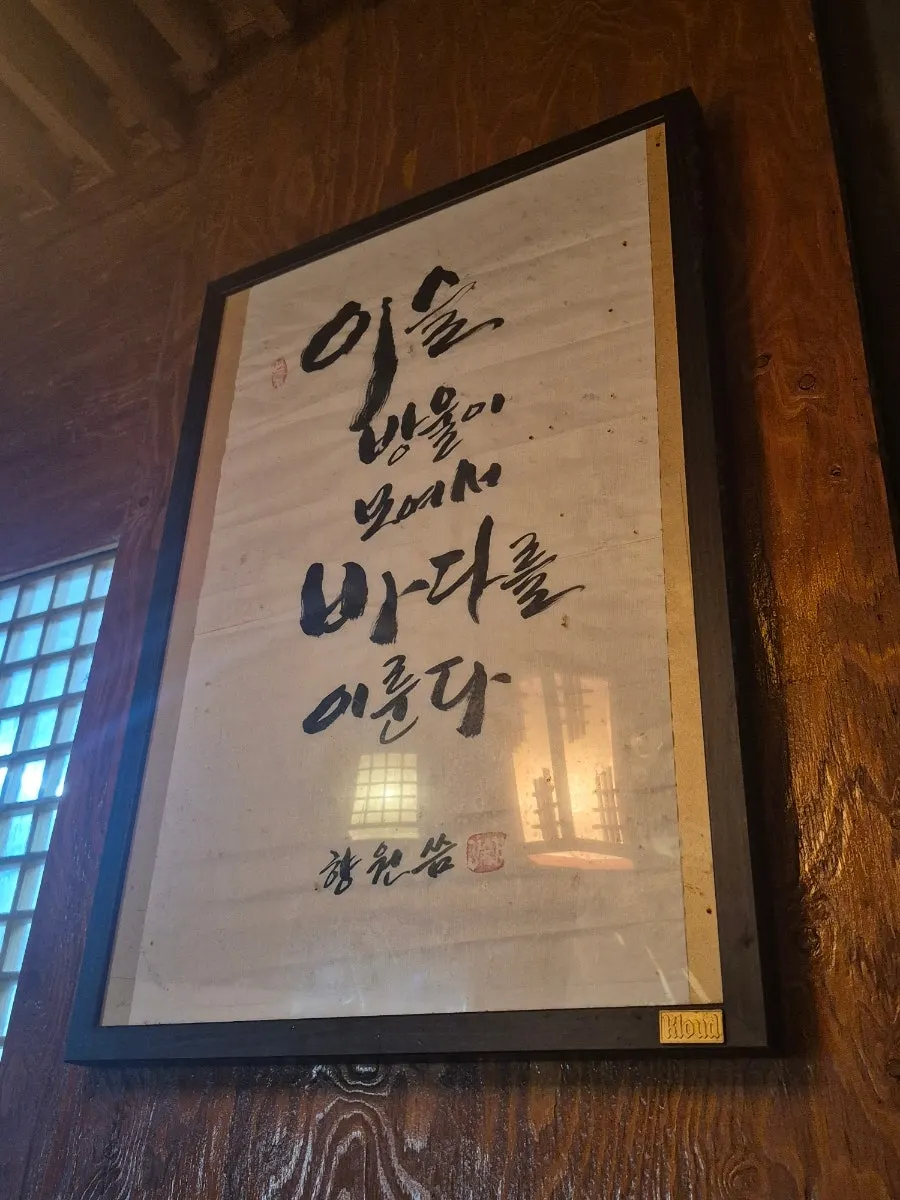 이슬
방울이
모여서
바다를
이룬다
향원 씀
Kloud